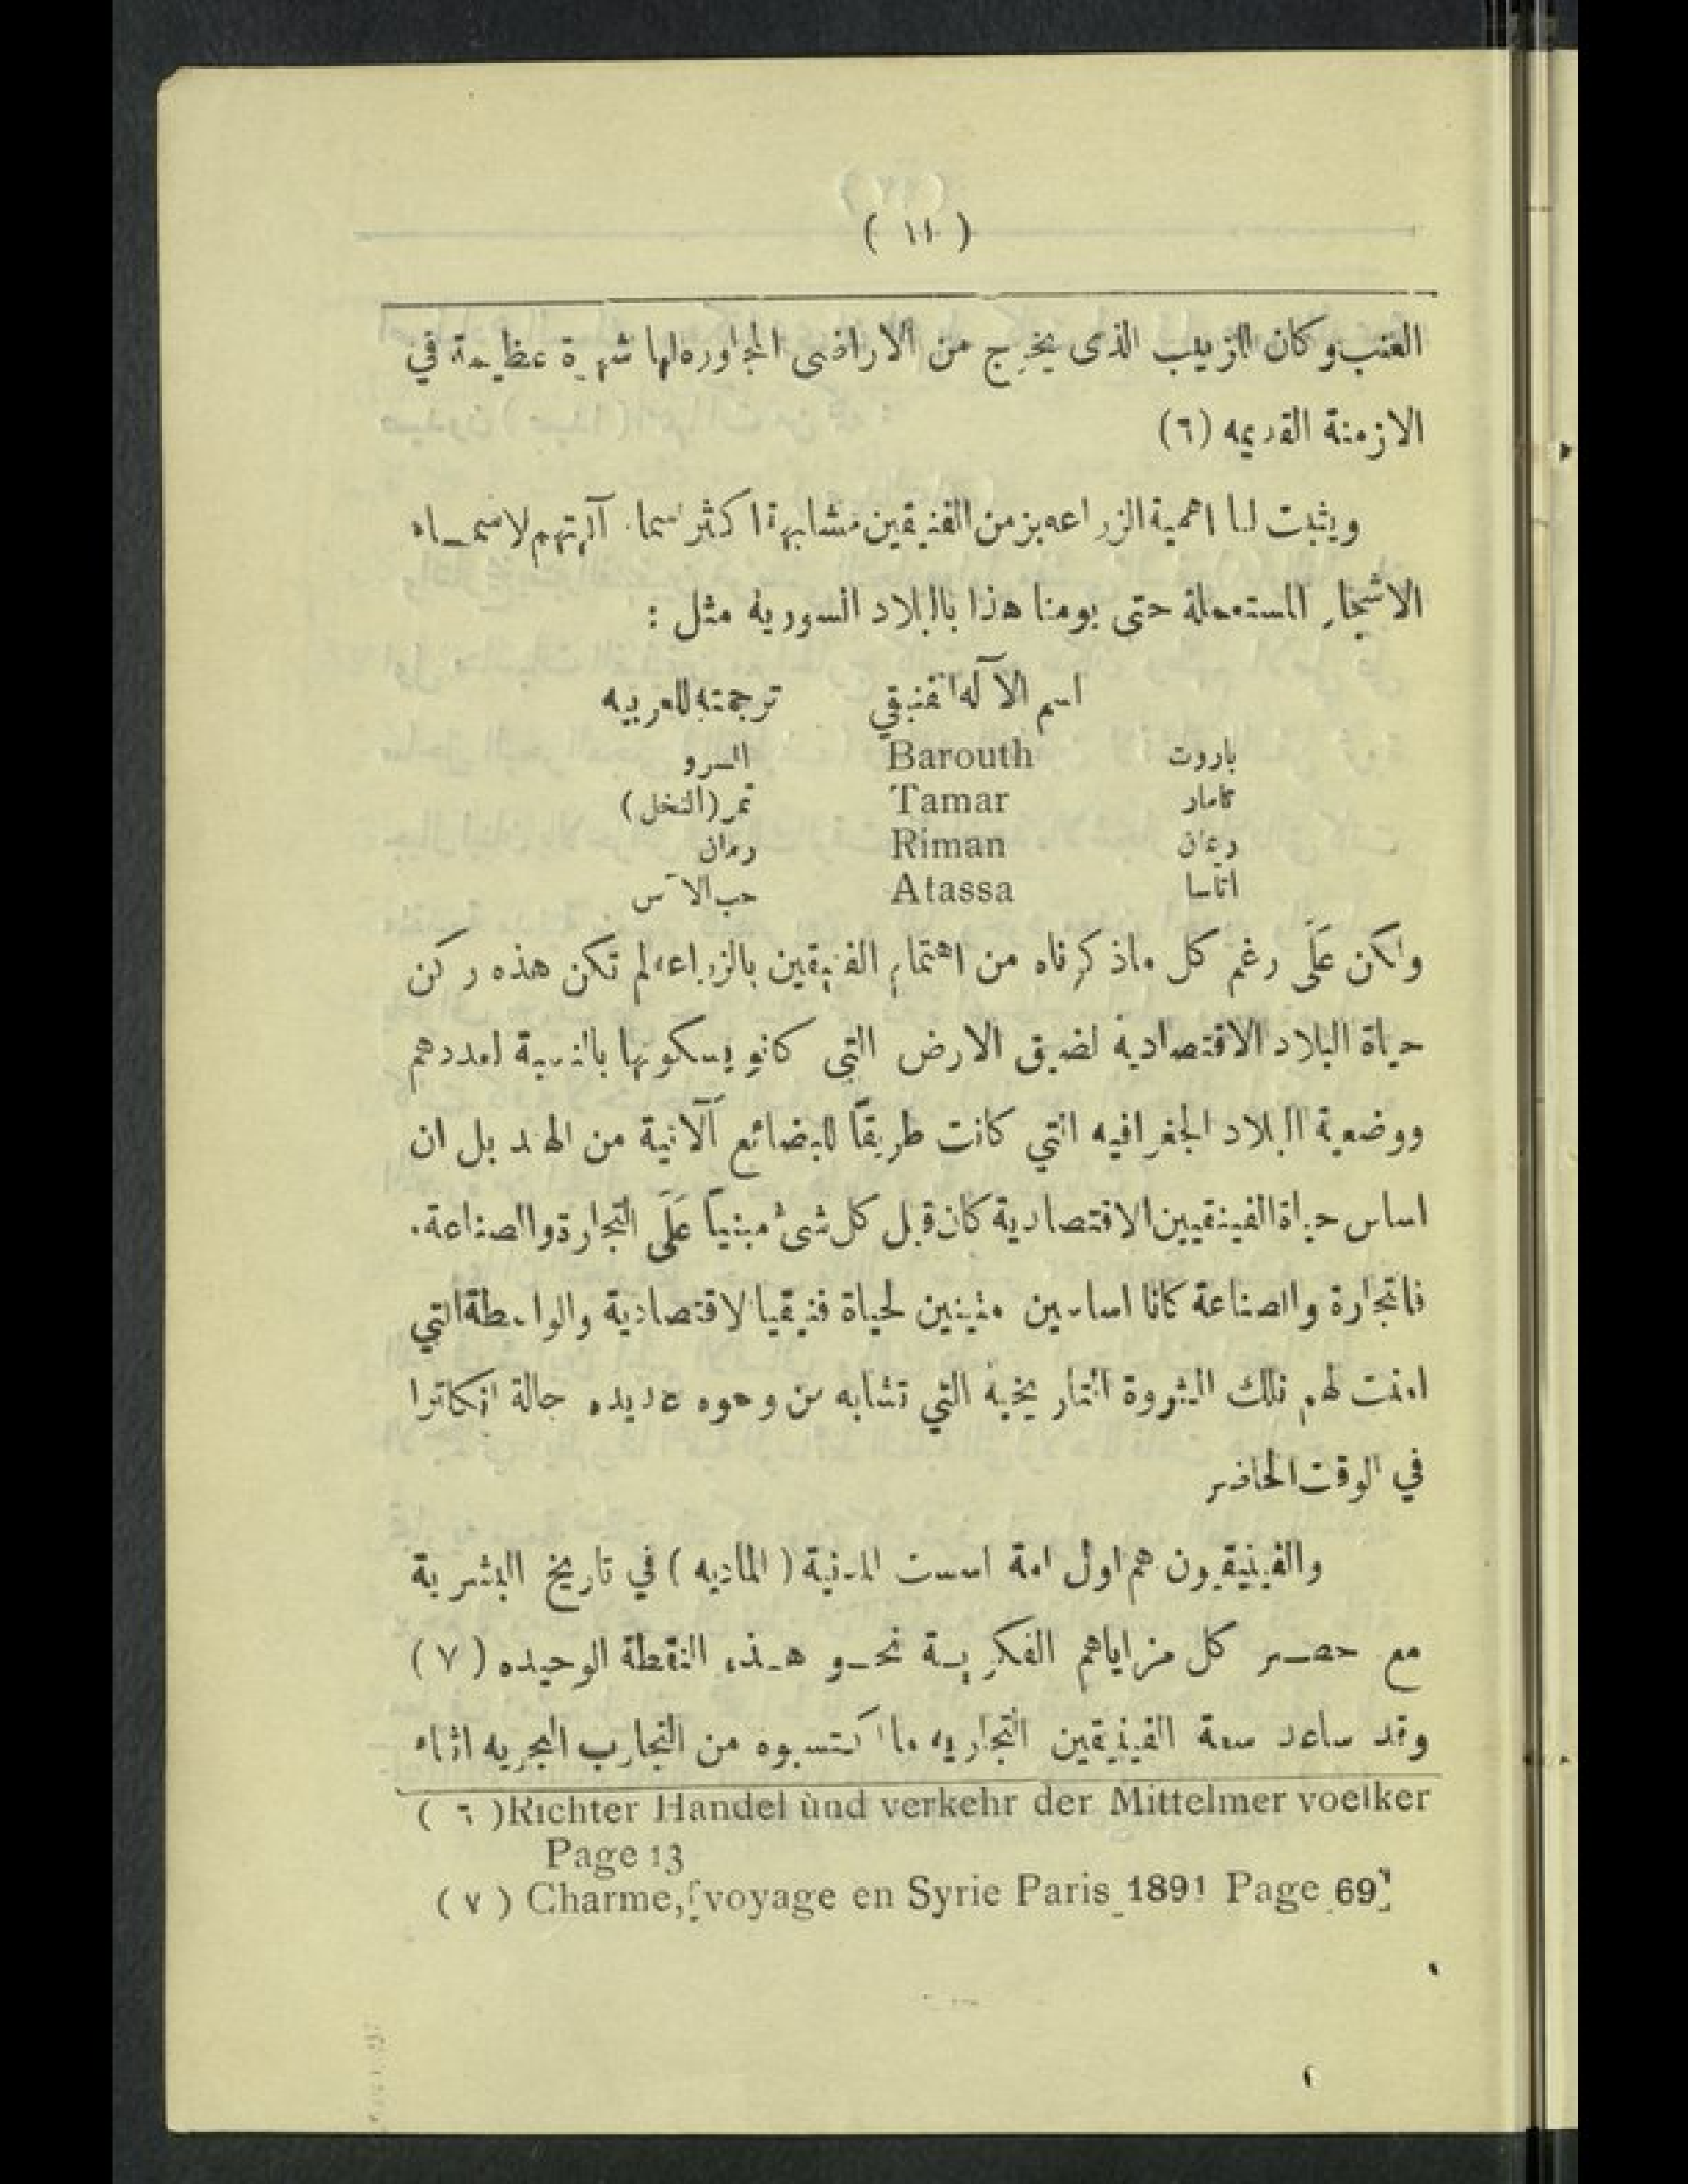 ( ١١ )
العنب وكان الزبيب الذى يخرج من الاراضى المجاوره لها شهرة عظيمة في
الازمنة القديمه (٦)
ويثبت لنا اهمية الزراعه بزمن الفنيقين مشابهة اكثر اسماء آلهتهم لاسمــاء
الاشجار المستعملة حتى يومنا هذا بالبلاد السورية مثل :
اسم الآله الفنيقي ترجمته للعربيه
باروت Barouth السرو
تامار Tamar تمر (النخل)
رمان Riman رمان
اتاسا Atassa حب الآس
ولكن عَلَى رغم كل ماذكرناه من اهتمام الفنيقين بالزراعه لم تكن هذه ركن
حياة البلاد الاقتصادية لضيق الارض التي كانو يسكونها بالنسبة لعددهم
ووضعية البلاد الجغرافيه التي كانت طريقاً للبضائع آلآتية من الهند بل ان
اساس حياة الفينقيين الاقتصادية كان قبل كل شئ مبنياً عَلَى التجارة والصناعة.
فاتجارة والصناعة كانا اساسين متينين لحياة فنيقيا لاقتصادية والواسطة التي
امنت لهم تلك الثروة التاريخية التي تشابه من وجوه عديده حالة انكلترا
في الوقت الحاضر
والفينيقيون هم اول امة اسست المدنية ( الماديه ) في تاريخ البشرية
مع حصــر كل مزاياهم الفكريــة نحــو هــذه النقطة الوحيده ( ٧ )
وقد ساعد سعة الفينيقين التجاريه ما اكتسبوه من التجارب البحريه اثناء
( ٦ )Richter Handel ùnd verkehr der Mittelmer voelker
Page 13
( ٧ ) Charme, voyage en Syrie Paris 1891 Page 69